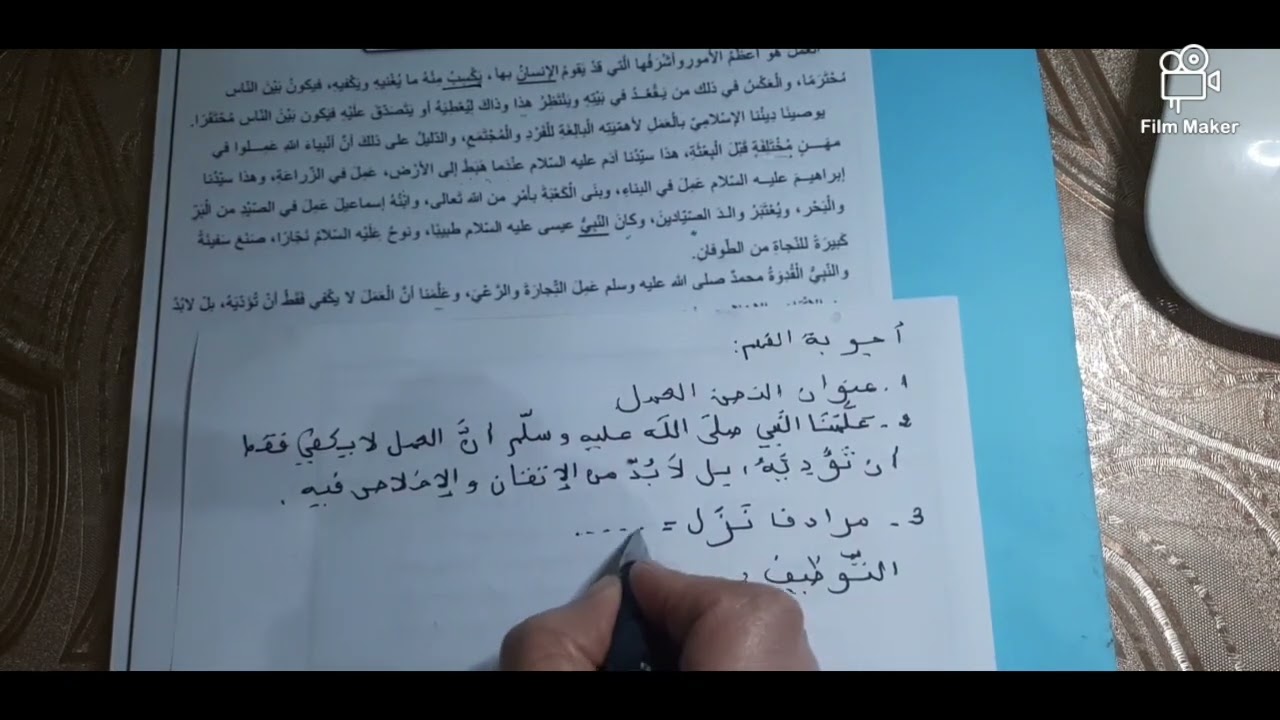 العمل هو أعظم الأمور وأشرفها الّتي قدْ يقومُ الإنسانُ بها، يَكْسِبُ مِنْهُ ما يُغْنيهِ ويَكْفيهِ، فيَكونُ بَيْنَ النّاس
مُحْتَرَمًا، والْعَكْسُ في ذلك من يَقْعُدُ في بَيْتِهِ ويَنْتَظِرُ هذا وذاكَ لِيُعْطِيَهُ أو يَتَصدّقَ عَلَيْهِ فيَكون بَيْنَ النّاس مُحْتَقَرًا.
يوصينا دينُنا الإسْلاميّ بالْعَمَلِ لأهمّيّته الْبالِغَةِ للْفَرْدِ والْمُجْتَمَعِ، والدّليلُ على ذلكَ أنّ أنْبِياءَ اللهِ عَمِـلوا في
مِهَـنٍ مُخْتَلِفَةٍ قَبْلَ الْبِعْثَةِ، هذا سيّدُنا آدَم عليه السّلام عنْدَما هَبَطَ إلى الأرْضِ، عَمِلَ في الزّراعَةِ، وهذا سيّدُنا
إبراهيمَ عليـه السّلام عَمِلَ في البناءِ، وبنَى الْكَعْبَةَ بأمْرٍ من الله تعالى، وابْنُهُ إسماعيلَ عَمِلَ في الصّيْدِ من الْبَرّ
والْبَحْرِ، ويُعْتَبَرُ والـدَ الصيّادينَ، وكانَ النّبيُّ عيسى عليه السّلام طبيبًا، ونوحُ عَلَيْه السّلامُ نجّارًا، صَنَعَ سَفينَةً
كَبيرَةً للنّجاةِ من الطّوفانِ.
والنّبيُّ الْقُدْوَةُ محمدٌ صلى الله عليه وسلم عَمِلَ التّجارَةَ والرّعْيَ، وعَلّمَنا أنّ الْعَمَلَ لا يَكْفي فَقَطْ أنْ تُؤَدّيَهُ، بلْ لابُدّ
أجوبة الفهم:
1. عنوان النص: العمل
2- عَلَّمَنَا النّبي صلّى اللّه عليه وسلّم أنَّ العمل لا يكفي فقط
أن تُؤَدِّيَهُ، بل لاَ بُدَّ من الإتقان والإخلاص فيه.
3- مرادفا نَزَلَ = .....
التَّوظيف
Film Maker